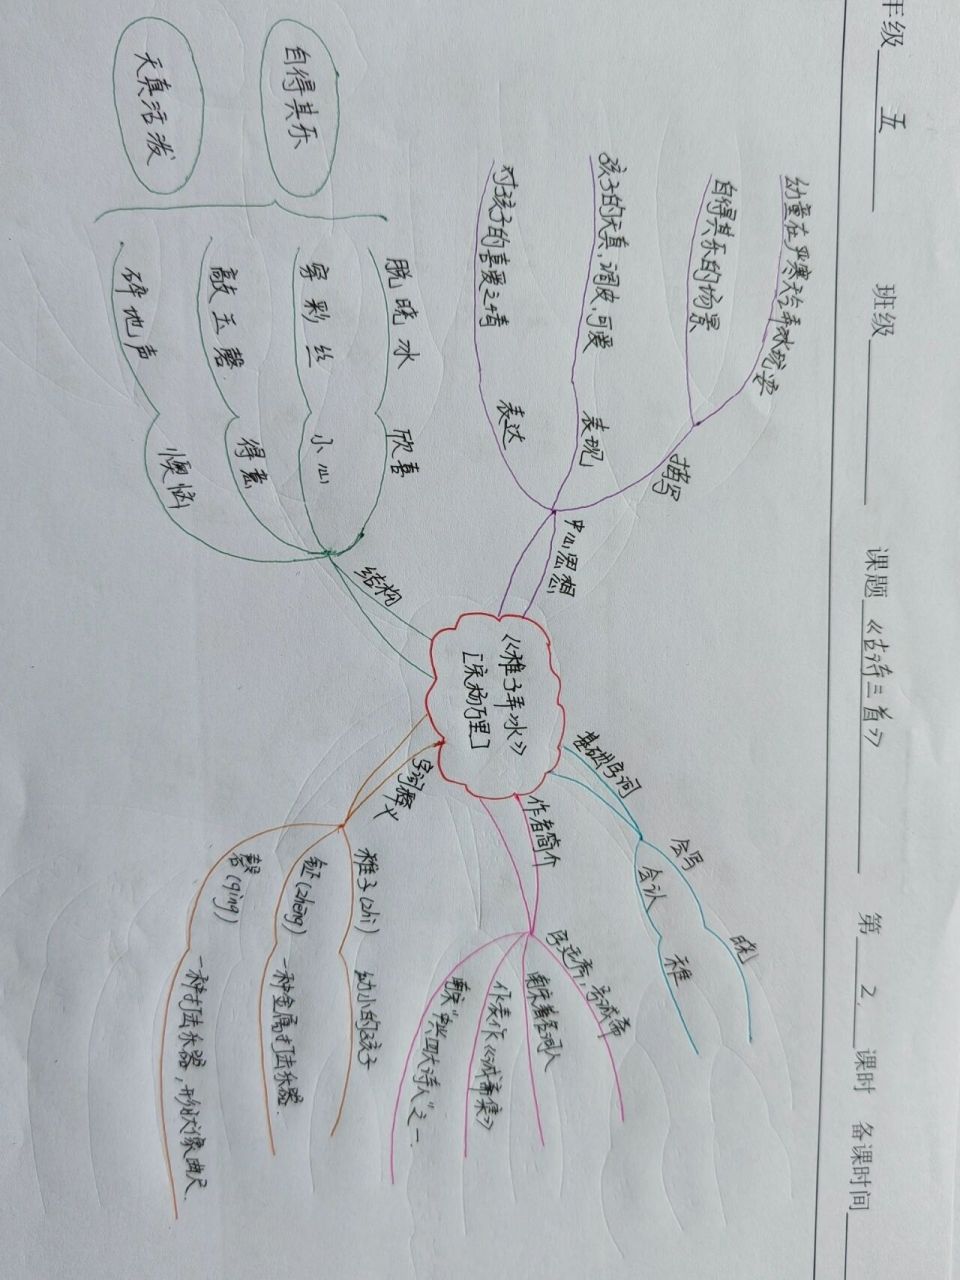 年级 五 班级 课题《古诗三首》 第 2. 课时 备课时间
《稚子弄冰》
[宋杨万里]
基础字词
会写
晓
会认
稚
作者简介
字廷秀，号诚斋
南宋著名词人
代表作《诚斋集》
南宋“四大诗人”之一
字词释义
稚子(zhì)
幼小的孩子
钲(zhēng)
一种金属打击乐器
磬(qìng)
一种打击乐器，形状象曲尺.
中心思想
描写
幼童在严寒天给弄冰玩耍
自得其乐的场景
表现
孩子的天真，调皮，可爱
表达
对孩子的喜爱之情
结构
脱晓冰
欣喜
穿彩丝
小心
敲玉磬.
得意
碎地声
懊恼
自得其乐
天真活泼